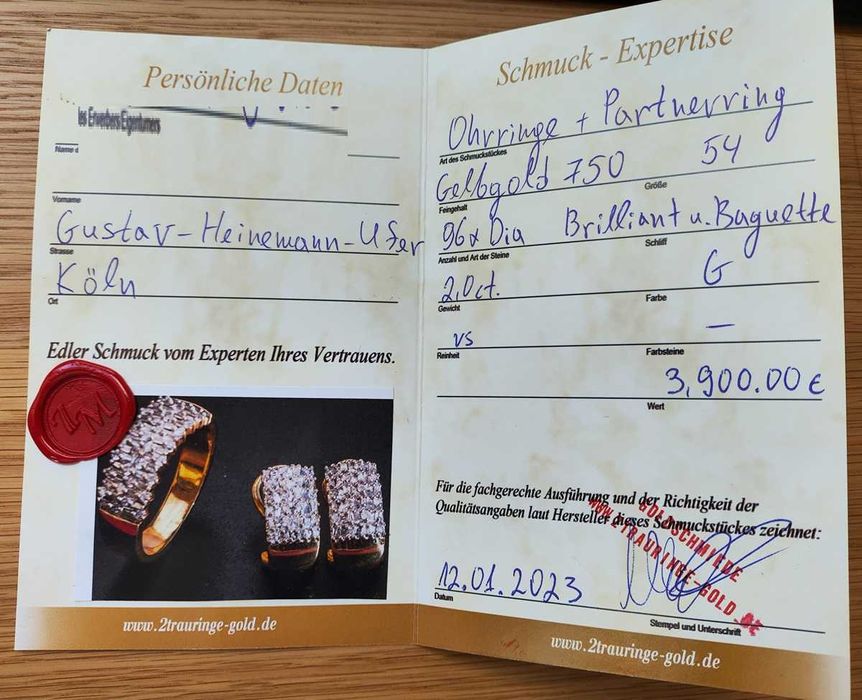 Persönliche Daten
des Erwerbers/Eigentümers
Name
Vorname
Gustav-Heinemann-Ufer
Strasse
Köln
Ort
Edler Schmuck vom Experten Ihres Vertrauens.
www.2trauringe-gold.de
Schmuck - Expertise
Ohrringe + Partnerring
Art des Schmuckstückes
Gelbgold 750 54
Feingehalt Größe
96x Dia Brilliant u. Baguette
Anzahl und Art der Steine Schliff
2,0ct. G
Gewicht Farbe
vs —
Reinheit Farbsteine
3,900.00 €
Wert
Für die fachgerechte Ausführung und der Richtigkeit der
Qualitätsangaben laut Hersteller dieses Schmuckstückes zeichnet:
GOLDSCHMIEDE
WWW.2TRAURINGE-GOLD.DE
12.01.2023
Datum Stempel und Unterschrift
www.2trauringe-gold.de